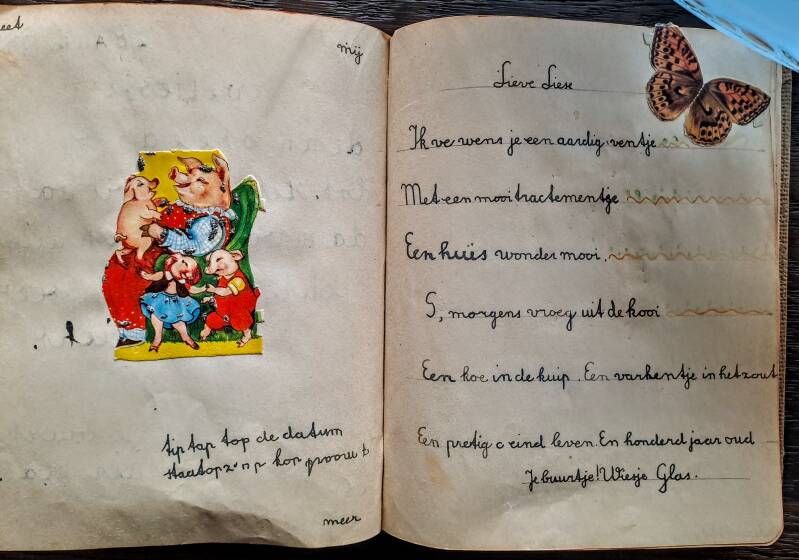 eet
mij
tip tap top de datum
staat op z'n p kop
meer
Lieve Liese
Ik ve wens je een aardig ventje
Met een mooi tractementje
Een huis wonder mooi
S, morgens vroeg uit de kooi
Een koe in de kuip. Een varkentje in het zout
Een pretig c eind leven. En honderd jaar oud
Je buurtje! Wiesje Glas.